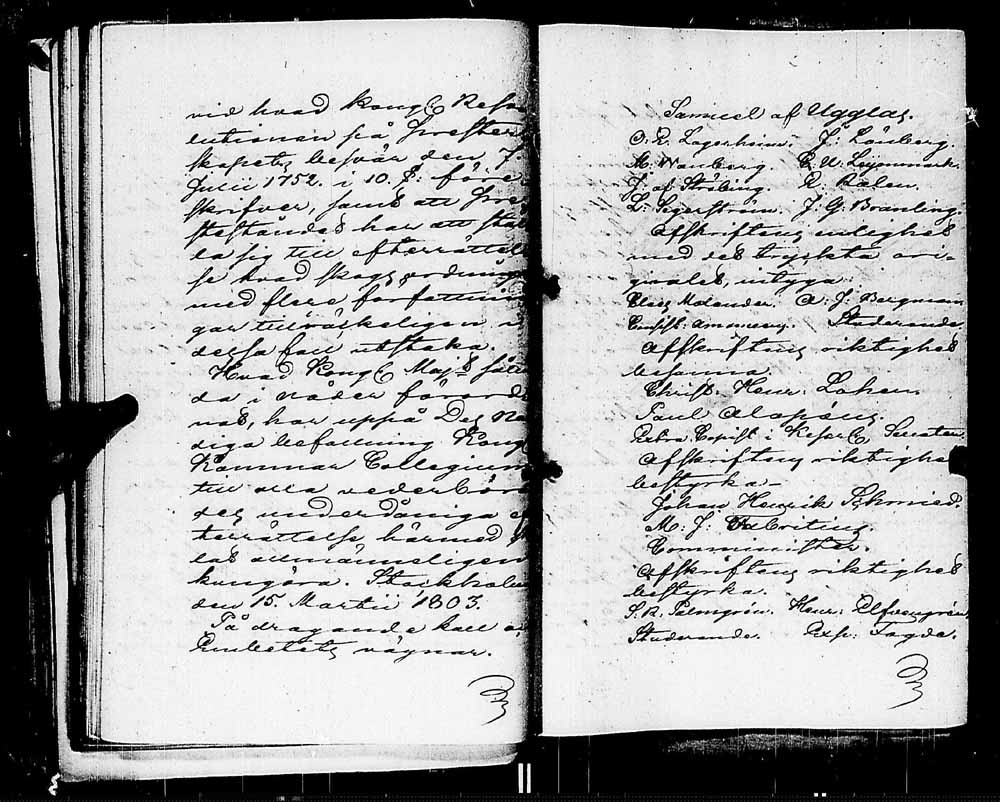 vid hvad Kongl Reso
lutionen på Prester
skapets besvär den 7.
Julii 1752. i 10. §: före
skrifver, samt att Pre
steståndet har att stäl
la sig till efterrättel
se hvad skogs ordning
med flere författnin
gar tillräckeligen i
dessa fall utstaka.
Hvad Kongl Maj:s såle
da i nåder förord
nat, har uppå Des Nå
diga befallning Kongl
Kammar Collegium
till alla vederbör
des underdåniga ef
terrättelse härmed
lat allmänneligen
kungöra. Stockholm
den 15. Martii 1803.
På dragande kall o
Embetets vägnar.
Samuel af Ugglas.
O. R. Lagerheim. J: Lönberg.
M: Wanberg. C: U: Leijonmark.
J: af Ståling. R: Balen.
L: Segerström. J. G: Branling.
Afskriftens enlighet
med det tryckta ori-
ginalet, intyga
Claes Molander. A: J: Bergman
Studerande
Afskriftens riktighet
besanna
Christ: Henr: Lohen
Paul Alopæus.
Extra Copist i Keserl Senaten.
Afskriftens riktighet
bestyrka-
Johan Henrik Schmied.
M: J:
Comminister.
Afskriftens riktighet
bestyrka.
S. R. Palmgrén. Henr: Elfvengrén,
Studerande. Exp: Fogde.